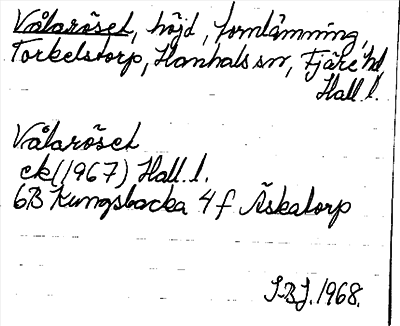 Vålaröset, höjd, fornlämning,
Torkelstorp, Hanhals sn, Fjäre hd
Hall. l.
Vålaröset
ek (1967) Hall. l.
6B Kungsbacka 4 f Äskatorp
I-BJ. 1968.